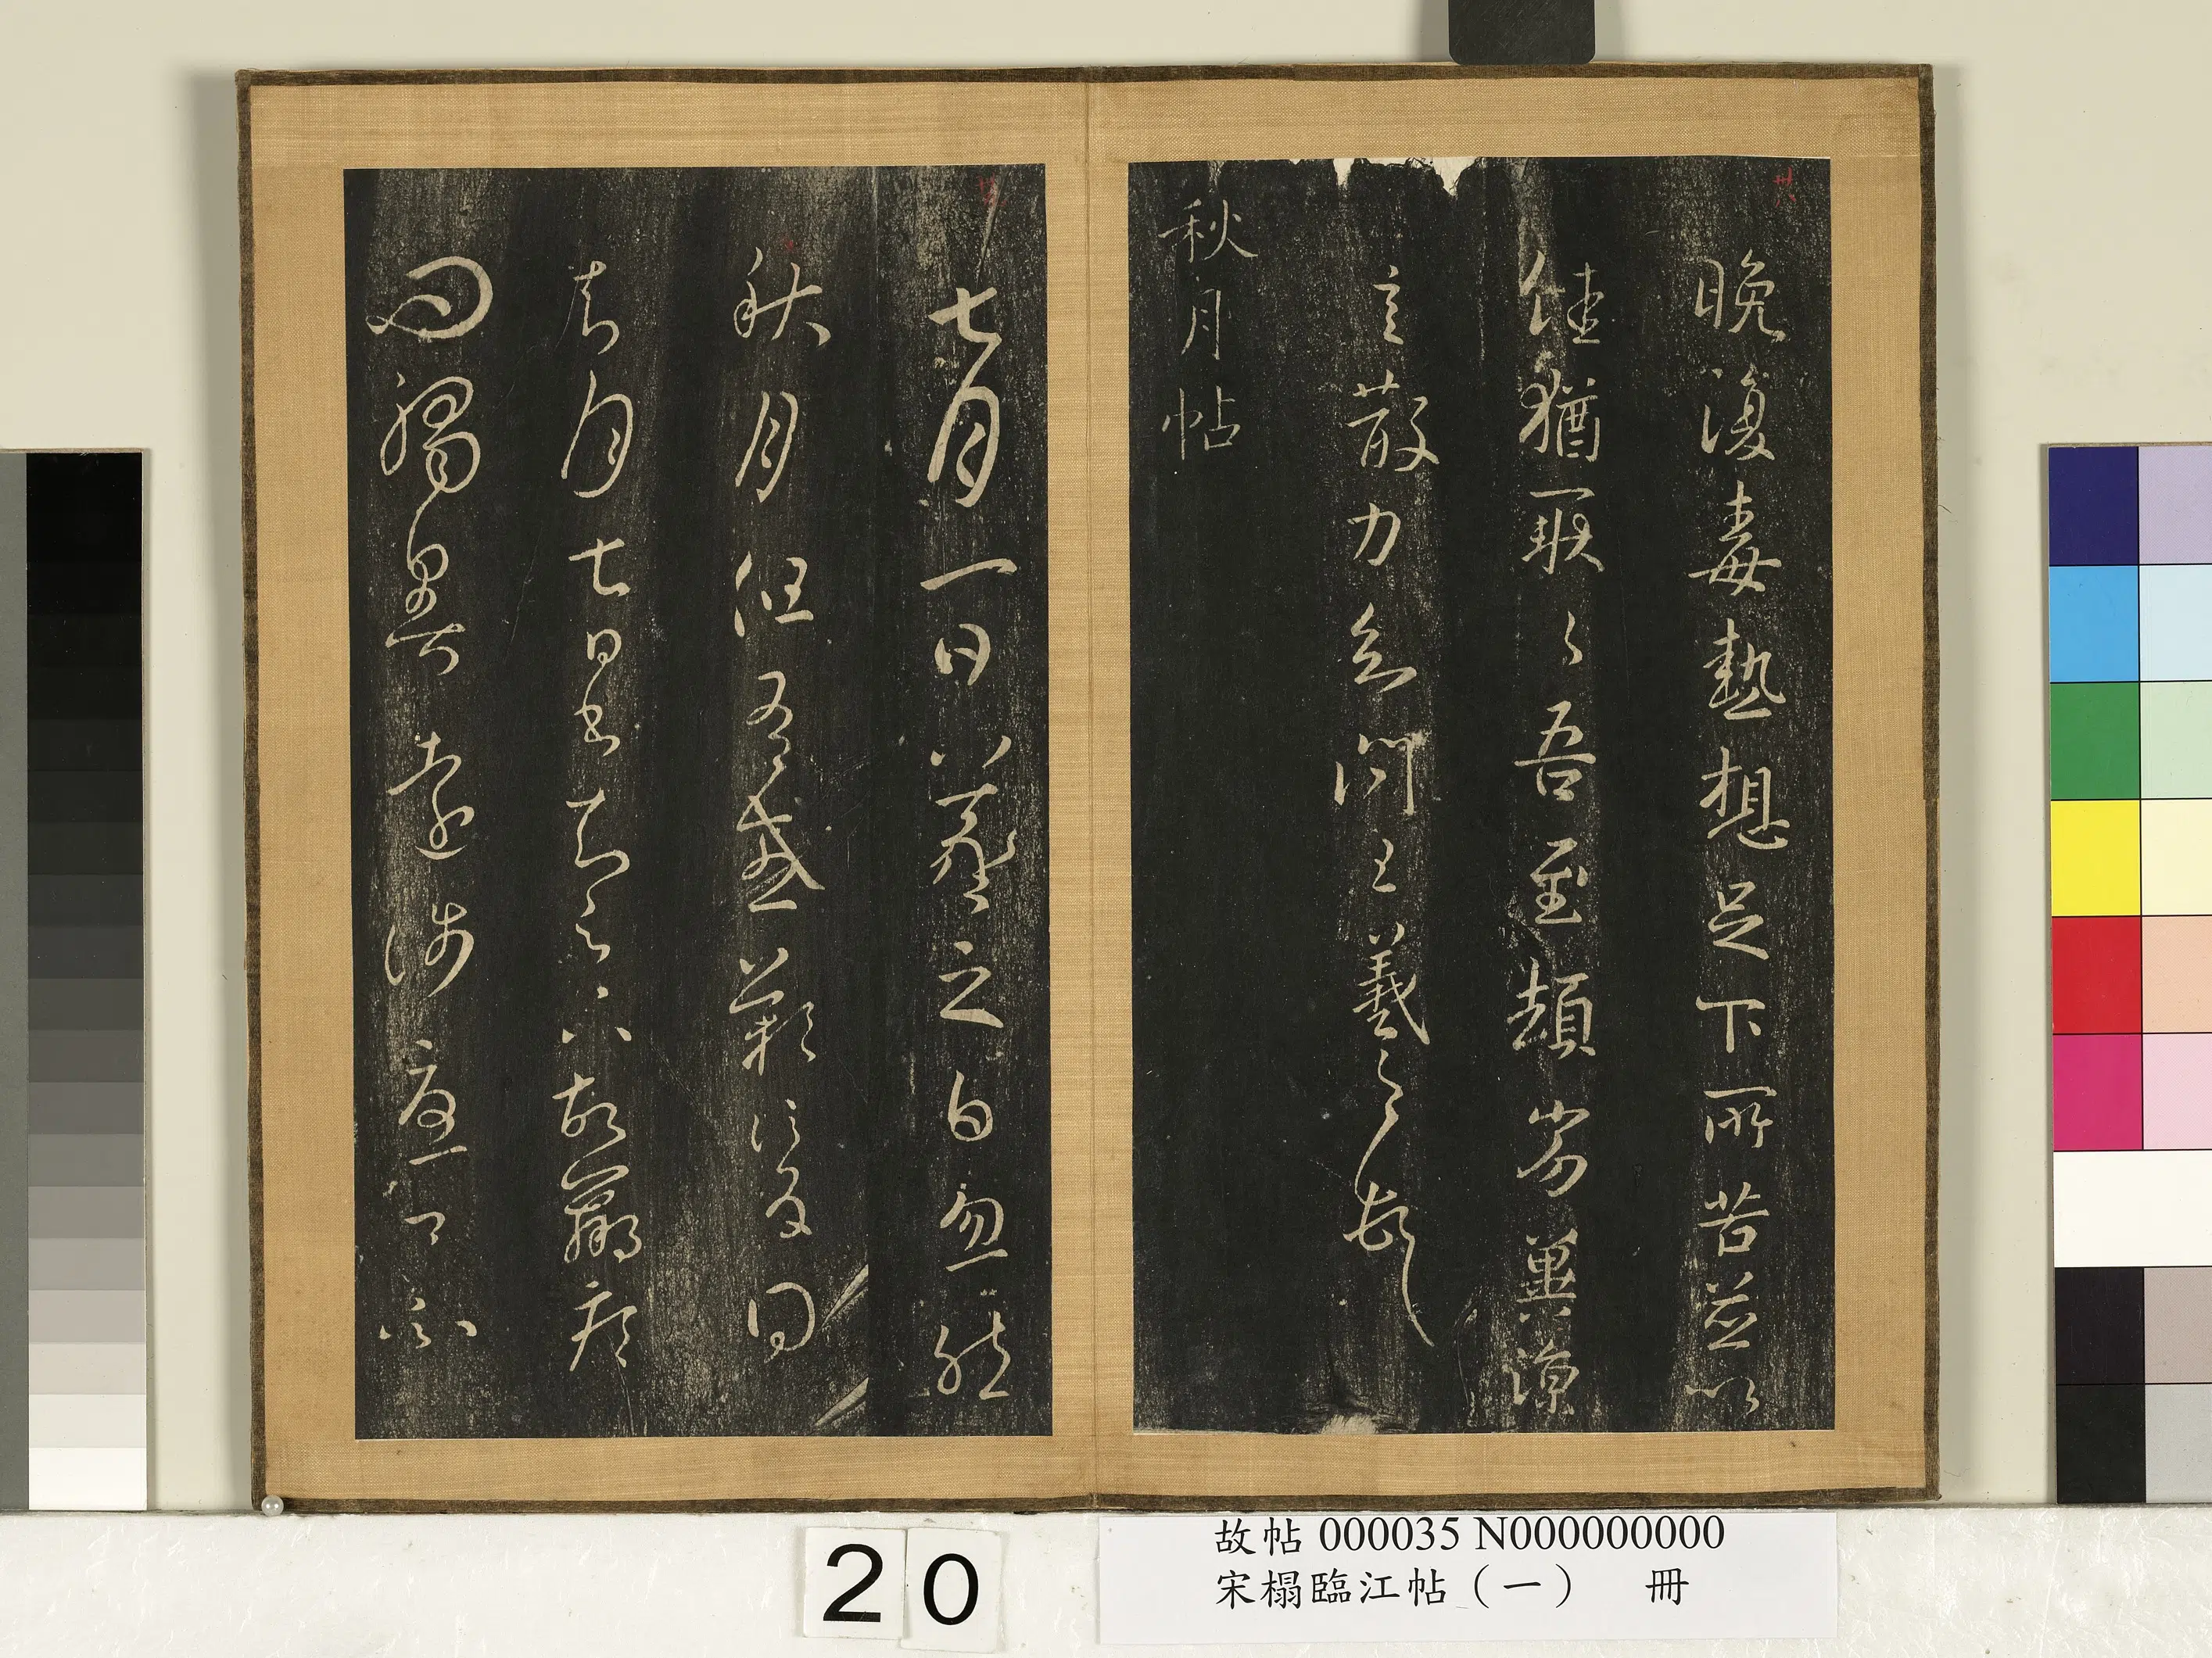 晚復毒熱想足下所苦並以
佳猶耿〻吾至頓劣冀涼
言散力知問王羲之頓首
秋月帖
七月一日羲之白忽然
秋月但有感歎信反得
去月七日書知足下故羸疾
問觸暑遠涉憂卿不
20
故帖 000035 N000000000
宋榻臨江帖(一) 冊